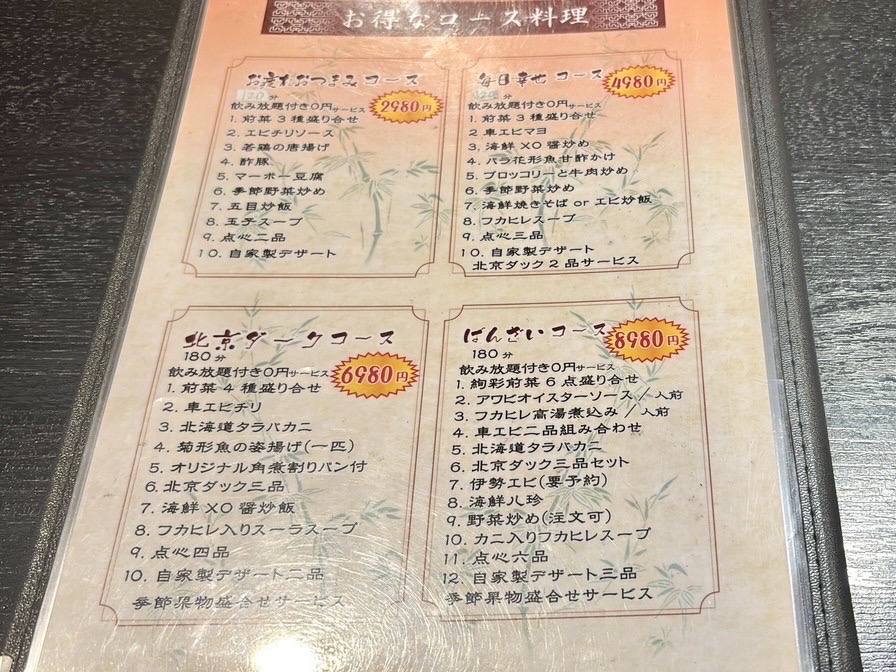 お得なコース料理
お疲れおつまみコース
120分
2980円
飲み放題付き0円サービス
1. 前菜3種盛り合せ
2. エビチリソース
3. 若鶏の唐揚げ
4. 酢豚
5. マーボー豆腐
6. 季節野菜炒め
7. 五目炒飯
8. 玉子スープ
9. 点心二品
10. 自家製デザート
毎日幸せコース
120分
4980円
飲み放題付き0円サービス
1. 前菜3種盛り合せ
2. 車エビマヨ
3. 海鮮XO醤炒め
4. バラ花形魚甘酢かけ
5. ブロッコリーと牛肉炒め
6. 季節野菜炒め
7. 海鮮焼きそば or エビ炒飯
8. フカヒレスープ
9. 点心三品
10. 自家製デザート
北京ダック2品サービス
北京ダークコース
180分
6980円
飲み放題付き0円サービス
1. 前菜4種盛り合せ
2. 車エビチリ
3. 北海道タラバカニ
4. 菊形魚の姿揚げ(一匹)
5. オリジナル角煮割りパン付
6. 北京ダック三品
7. 海鮮XO醤炒飯
8. フカヒレ入りスーラスープ
9. 点心四品
10. 自家製デザート二品
季節果物盛合せサービス
ばんざいコース
180分
8980円
飲み放題付き0円サービス
1. 絢彩前菜6点盛り合せ
2. アワビオイスターソース/人前
3. フカヒレ高湯煮込み/人前
4. 車エビ二品組み合わせ
5. 北海道タラバカニ
6. 北京ダック三品セット
7. 伊勢エビ(要予約)
8. 海鮮八珍
9. 野菜炒め(注文可)
10. カニ入りフカヒレスープ
11. 点心六品
12. 自家製デザート三品
季節果物盛合せサービス